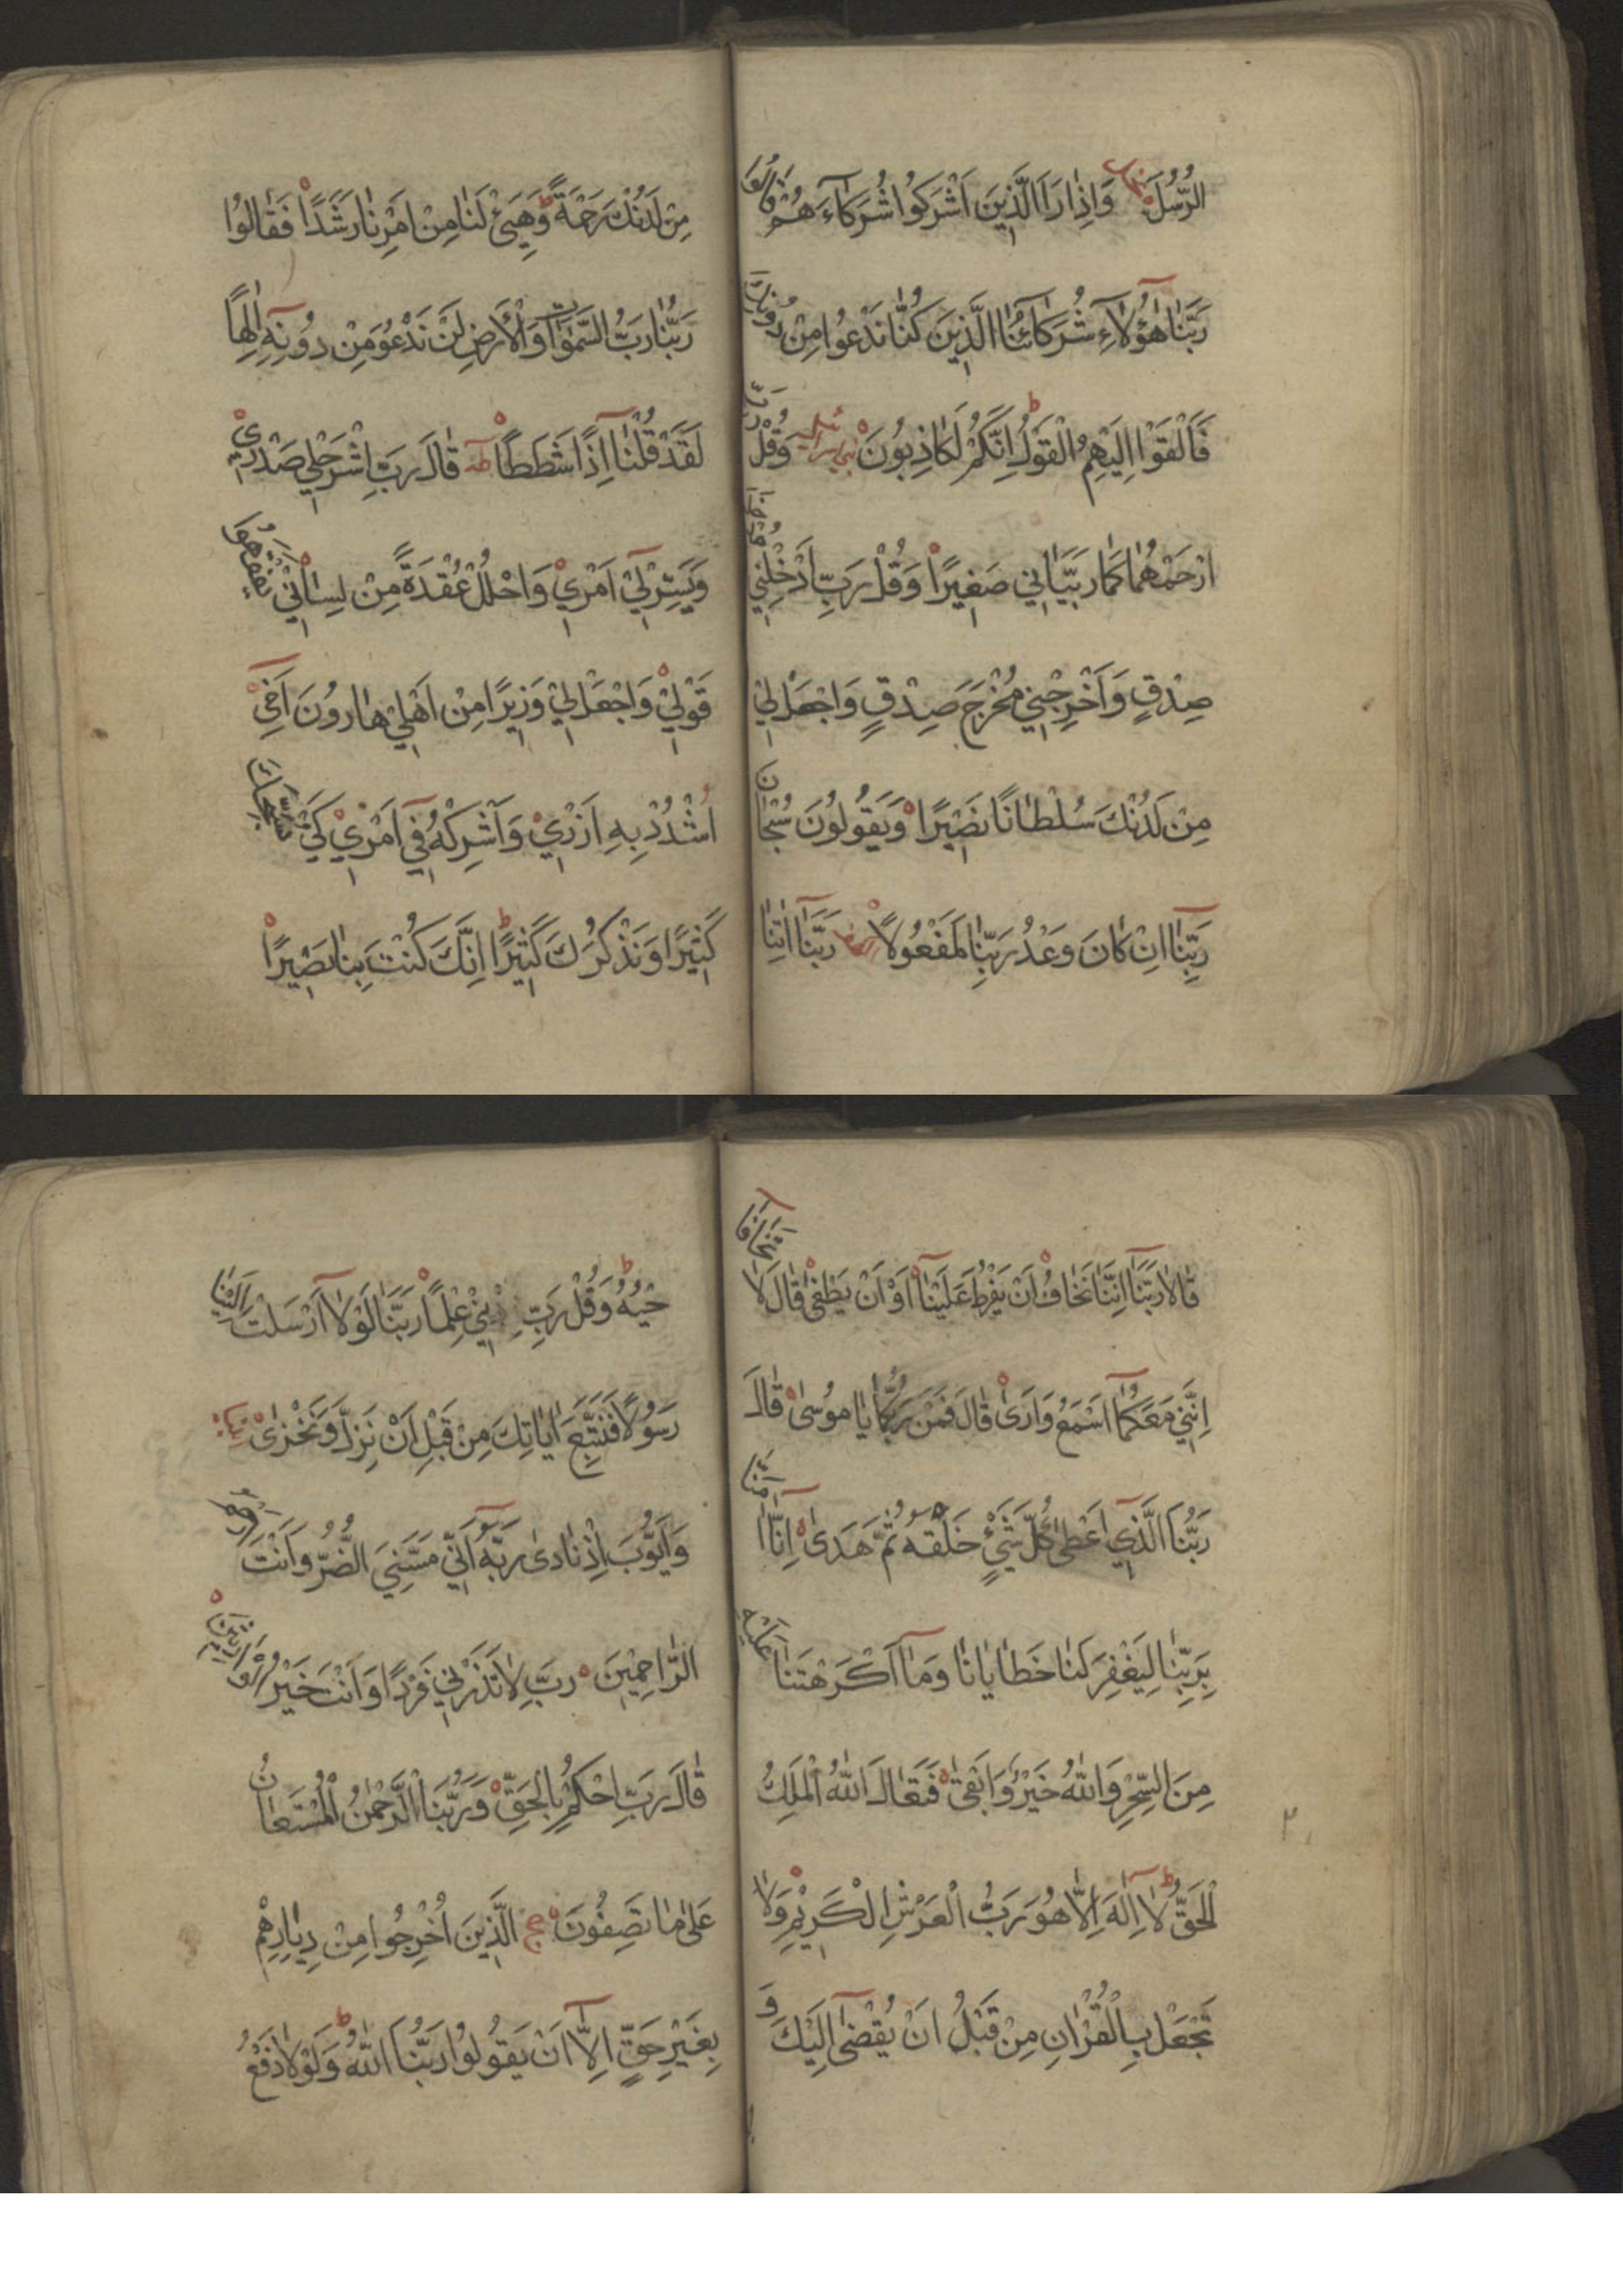 الرُّسُلَ وَاِذَا رَاَ الَّذِينَ اَشْرَكُوا شُرَكَاءَهُمْ قَالُوا
رَبَّنَا هٰؤُلَاءِ شُرَكَاؤُنَا الَّذِينَ كُنَّا نَدْعُوا مِنْ دُونِكَ
فَاَلْقَوْا اِلَيْهِمُ الْقَوْلَ اِنَّكُمْ لَكَاذِبُونَ بنی اسرائیل وَقُلْ رَبِّ
ارْحَمْهُمَا كَمَا رَبَّيَانِي صَغِيرًا وَقُلْ رَبِّ اَدْخِلْنِي مُدْخَلَ
صِدْقٍ وَاَخْرِجْنِي مُخْرَجَ صِدْقٍ وَاجْعَلْ لِي
مِنْ لَدُنْكَ سُلْطَانًا نَصِيرًا وَيَقُولُونَ سُبْحَانَ
رَبِّنَا اِنْ كَانَ وَعْدُ رَبِّنَا لَمَفْعُولًا الكهف رَبَّنَا اٰتِنَا
مِنْ لَدُنْكَ رَحْمَةً وَهَيِّئْ لَنَا مِنْ اَمْرِنَا رَشَدًا فَقَالُوا
رَبُّنَا رَبُّ السَّمٰوَاتِ وَالْاَرْضِ لَنْ نَدْعُوَ مِنْ دُونِهِ اِلٰهًا
لَقَدْ قُلْنَا اِذًا شَطَطًا طه قَالَ رَبِّ اشْرَحْ لِي صَدْرِي
وَيَسِّرْ لِي اَمْرِي وَاحْلُلْ عُقْدَةً مِنْ لِسَانِي يَفْقَهُوا
قَوْلِي وَاجْعَلْ لِي وَزِيرًا مِنْ اَهْلِي هَارُونَ اَخِي
اشْدُدْ بِهِ اَزْرِي وَاَشْرِكْهُ فِي اَمْرِي كَيْ نُسَبِّحَكَ
كَثِيرًا وَنَذْكُرَكَ كَثِيرًا اِنَّكَ كُنْتَ بِنَا بَصِيرًا
قَالَا رَبَّنَا اِنَّنَا نَخَافُ اَنْ يَفْرُطَ عَلَيْنَا اَوْ اَنْ يَطْغٰى قَالَ لَا تَخَافَا
اِنَّنِي مَعَكُمَا اَسْمَعُ وَاَرٰى قَالَ فَمَنْ رَبُّكُمَا يَا مُوسٰى قَالَ
رَبُّنَا الَّذِي اَعْطٰى كُلَّ شَيْءٍ خَلْقَهُ ثُمَّ هَدٰى اِنَّا اٰمَنَّا
بِرَبِّنَا لِيَغْفِرَ لَنَا خَطَايَانَا وَمَا اَكْرَهْتَنَا عَلَيْهِ
مِنَ السِّحْرِ وَاللّٰهُ خَيْرٌ وَاَبْقٰى فَتَعَالَى اللّٰهُ الْمَلِكُ
الْحَقُّ لَا اِلٰهَ اِلَّا هُوَ رَبُّ الْعَرْشِ الْكَرِيْمِ وَلَا
تَعْجَلْ بِالْقُرْاٰنِ مِنْ قَبْلِ اَنْ يُقْضٰى اِلَيْكَ وَ
حْيُهُ وَقُلْ رَبِّ زِدْنِي عِلْمًا رَبَّنَا لَوْلَا اَرْسَلْتَ اِلَيْنَا
رَسُولًا فَنَتَّبِعَ اٰيَاتِكَ مِنْ قَبْلِ اَنْ نَذِلَّ وَنَخْزٰى
وَاَيُّوْبَ اِذْ نَادٰى رَبَّهُ اَنِّي مَسَّنِيَ الضُّرُّ وَاَنْتَ اَرْحَمُ
الرَّاحِمِيْنَ رَبِّ لَا تَذَرْنِي فَرْدًا وَاَنْتَ خَيْرُ الْوَارِثِينَ
قَالَ رَبِّ احْكُمْ بِالْحَقِّ وَرَبُّنَا الرَّحْمٰنُ الْمُسْتَعَانُ
عَلٰى مَا تَصِفُونَ حج الَّذِينَ اُخْرِجُوا مِنْ دِيَارِهِمْ
بِغَيْرِ حَقٍّ اِلَّا اَنْ يَقُولُوا رَبُّنَا اللّٰهُ وَلَوْلَا دَفْعُ